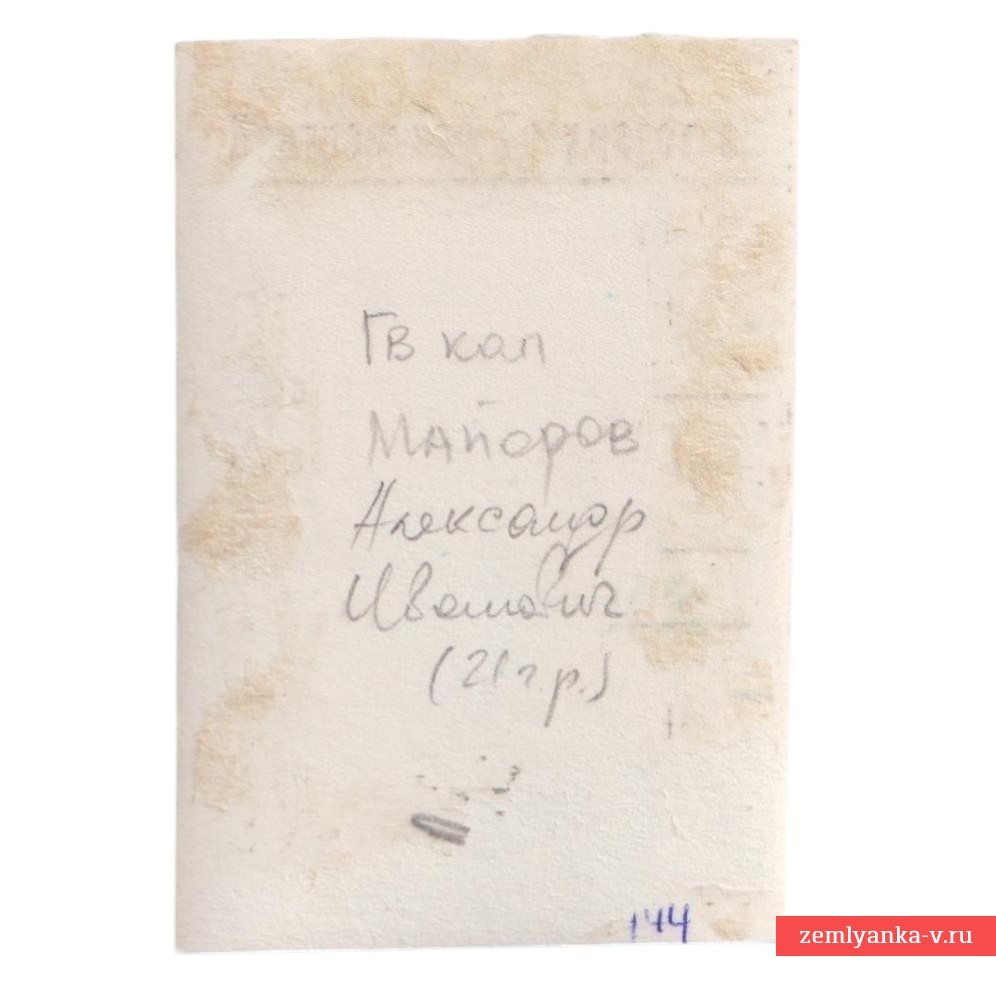 Гв кап
Майоров
Александр
Иванович
(21 г.р.)
144
zemlyanka-v.ru